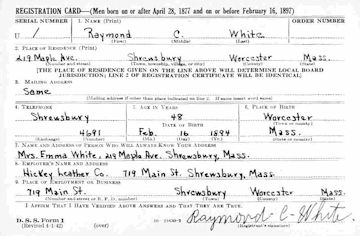 REGISTRATION CARD—(Men born on or after April 28, 1877 and on or before February 16, 1897)
SERIAL NUMBER 1. NAME (Print) ORDER NUMBER
U / Raymond C. White
(First) (Middle) (Last)
2. PLACE OF RESIDENCE (Print)
219 Maple Ave. Shrewsbury Worcester Mass.
(Number and street) (Town, township, village, or city) (County) (State)
[THE PLACE OF RESIDENCE GIVEN ON THE LINE ABOVE WILL DETERMINE LOCAL BOARD
JURISDICTION; LINE 2 OF REGISTRATION CERTIFICATE WILL BE IDENTICAL]
3. MAILING ADDRESS
Same
(Mailing address if other than place indicated on line 2. If same insert word same)
4. TELEPHONE 5. AGE IN YEARS 6. PLACE OF BIRTH
Shrewsbury 48 Worcester
DATE OF BIRTH (Town or county)
4691 Feb. 16 1894 Mass.
(Exchange) (Number) (Mo.) (Day) (Yr.) (State or country)
7. NAME AND ADDRESS OF PERSON WHO WILL ALWAYS KNOW YOUR ADDRESS
Mrs. Emma White, 219 Maple Ave. Shrewsbury, Mass.
8. EMPLOYER'S NAME AND ADDRESS
Hickey Leather Co. 719 Main St. Shrewsbury, Mass.
9. PLACE OF EMPLOYMENT OR BUSINESS
719 Main St. Shrewsbury Worcester Mass.
(Number and street or R. F. D. number) (Town) (County) (State)
I AFFIRM THAT I HAVE VERIFIED ABOVE ANSWERS AND THAT THEY ARE TRUE.
D. S. S. Form 1
(Revised 4-1-42) (over)
Raymond C. White